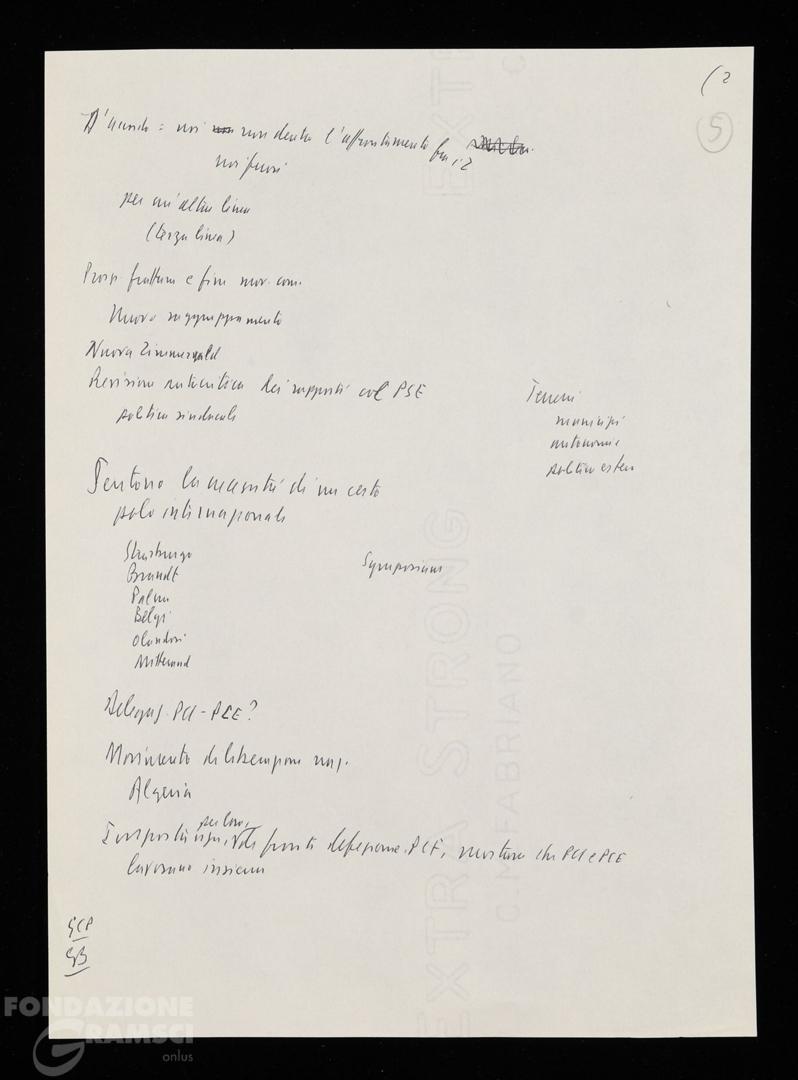 (2
5
D'accordo = noi non dentro l'affrontamento fra i 2
noi fuori
per un'altra linea
(terza linea)
Prosp. frattura e fine mov. com.
Nuovo raggruppamento
Nuova Zimmerwald
Revisione autocritica dei rapporti col PSE
politica sindacale
Terreni
municipi
autonomie
politica estera
Sentono la necessità di un certo
polo internazionale
Strasburgo
Brandt
Palme
Belgi
Olandesi
Mitterand
Symposium
Delegaz. PCI - PCE?
Movimento di liberazione naz.
Algeria
per loro,
Importante di fronte defezione PCF, mostrare che PCI e PCE
lavorano insieme
GCP
GB
EXTRA STRONG
C.M.FABRIANO
FONDAZIONE
GRAMSCI
onlus